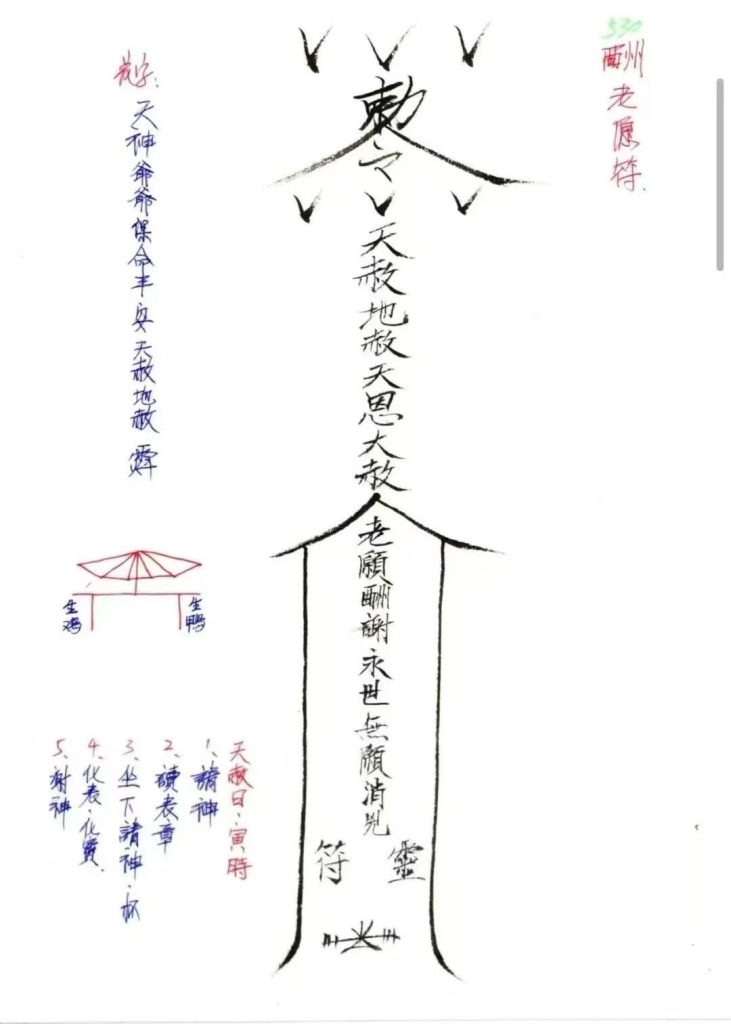 530
酬老愿符.
勅令
天赦地赦天恩大赦
老願酬謝永世無願消
靈
符
天神爺爺保命平安天赦地赦
生鴨
生鸡
天赦日、寅時
1、請神
2、讀表章
3、坐下請神、杯
4、化表、化寶.
5、謝神